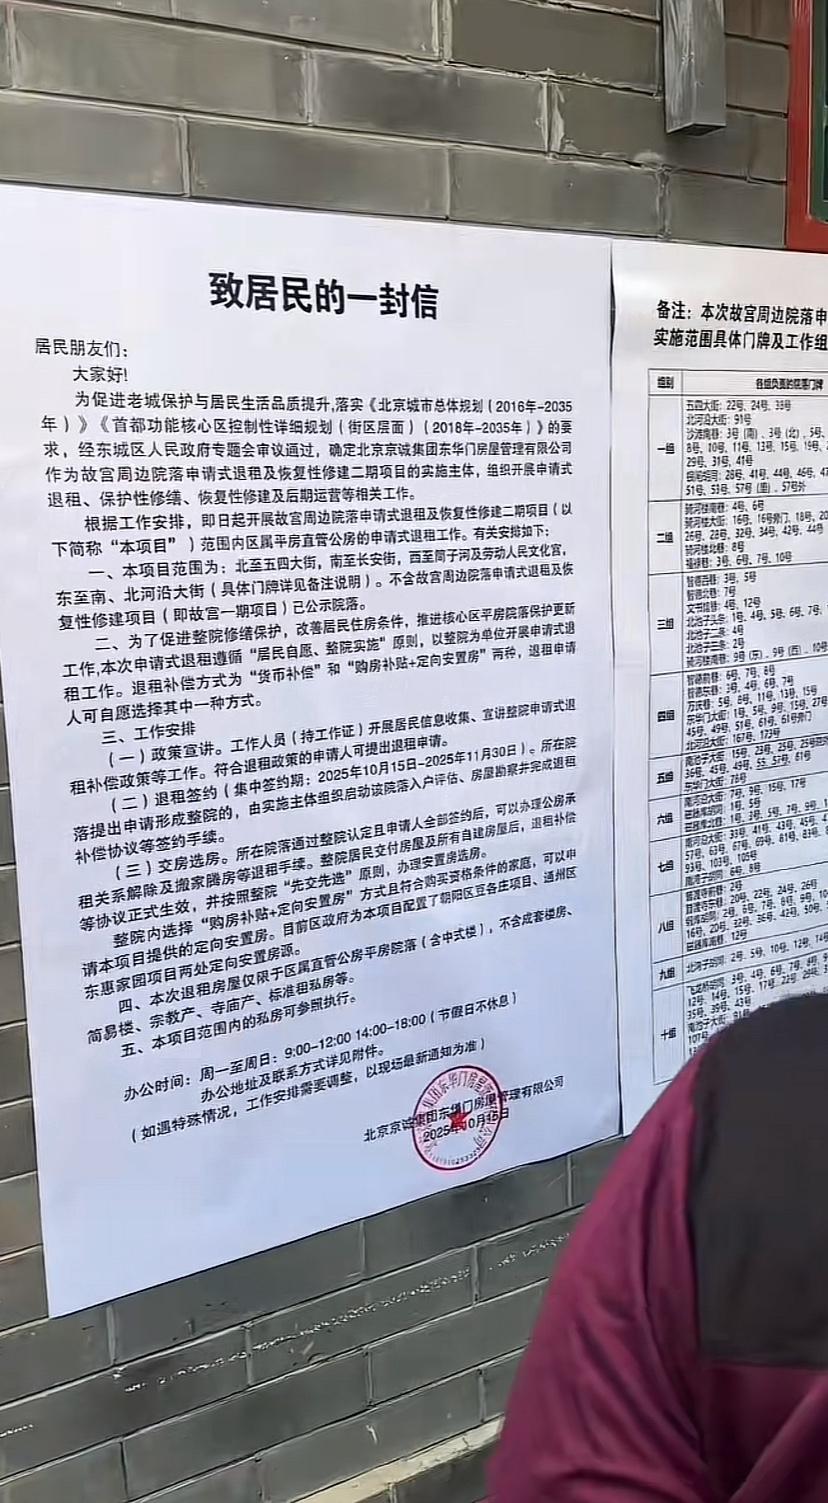 致居民的一封信
居民朋友们：
大家好！
为促进老城保护与居民生活品质提升,落实《北京城市总体规划（2016年-2035
年）》《首都功能核心区控制性详细规划（街区层面）（2018年-2035年）》的要
求，经东城区人民政府专题会审议通过，确定北京京诚集团东华门房屋管理有限公司
作为故宫周边院落申请式退租及恢复性修建二期项目的实施主体，组织开展申请式
退租、保护性修缮、恢复性修建及后期运营等相关工作。
根据工作安排，即日起开展故宫周边院落申请式退租及恢复性修建二期项目（以
下简称“本项目”）范围内区属平房直管公房的申请式退租工作。有关安排如下：
一、本项目范围为：北至五四大街，南至长安街，西至筒子河及劳动人民文化宫，
东至南、北河沿大街（具体门牌详见备注说明）。不含故宫周边院落申请式退租及恢
复性修建项目（即故宫一期项目）已公示院落。
二、为了促进整院修缮保护，改善居民住房条件，推进核心区平房院落保护更新
工作,本次申请式退租遵循“居民自愿、整院实施”原则，以整院为单位开展申请式退
租工作。退租补偿方式为“货币补偿”和“购房补贴+定向安置房”两种，退租申请
人可自愿选择其中一种方式。
三、工作安排
（一）政策宣讲。工作人员（持工作证）开展居民信息收集、宣讲整院申请式退
租补偿政策等工作。符合退租政策的申请人可提出退租申请。
（二）退租签约（集中签约期：2025年10月15日-2025年11月30日）。所在院
落提出申请形成整院的，由实施主体组织启动该院落入户评估、房屋勘察并完成退租
补偿协议等签约手续。
（三）交房选房。所在院落通过整院认定且申请人全部签约后，可以办理公房承
租关系解除及搬家腾房等退租手续。整院居民交付房屋及所有自建房屋后，退租补偿
等协议正式生效，并按照整院“先交先选”原则，办理安置房选房。
整院内选择“购房补贴+定向安置房”方式且符合购买资格条件的家庭，可以申
请本项目提供的定向安置房。目前区政府为本项目配置了朝阳区豆各庄项目、通州区
东惠家园项目两处定向安置房源。
四、本次退租房屋仅限于区属直管公房平房院落（含中式楼），不含成套楼房、
简易楼、宗教产、寺庙产、标准租私房等。
五、本项目范围内的私房可参照执行。
办公时间：周一至周日：9:00-12:00 14:00-18:00（节假日不休息）
办公地址及联系方式详见附件。
（如遇特殊情况，工作安排需要调整，以现场最新通知为准）
北京京诚集团东华门房屋管理有限公司
2025年10月15日
备注：本次故宫周边院落申
实施范围具体门牌及工作组
组别 各组负责的院落门牌
一组
五四大街：22号、24号、33号
北河沿大街：91号
沙滩南巷：3号（南）、3号（北）、5号、
8号、10号、11号、13号、15号、19号、
29号、31号、41号
28号、41号、44号、46号、
51号、53号、57号
二组
骑河楼南巷：4号、6号
骑河楼大街：16号、16号旁门、18号、
26号、28号、32号、34号、42号、44号
骑河楼北巷：8号
福禄巷：3号、6号、7号、10号
三组
智德西巷：3号、5号
智德北巷：7号
文书馆巷：4号、12号
北池子头条：1号、4号、5号、6号、7号、
北池子二条：4号
北池子三条：2号
骑河楼南巷：9号（东）、9号（西）、10号
四组
智德前巷：6号、7号、8号
智德东巷：3号、4号、6号、7号
万庆巷：5号、8号、11号、13号、15号
东华门大街：1号、5号、9号、15号、27号
45号、49号、51号、61号、61号旁门
北河沿大街：167号、173号
五组
南池子大街：15号、23号、25号、
36号、45号、49号、55、57号、61号
东华门大街：76号
六组
南河沿大街：7号、9号、15号、17号
七组
南河沿大街：33号、41号、43号、45号、
57号、63号、67号、69号、81号、83号、
93号、103号、105号
八组
九组
十组